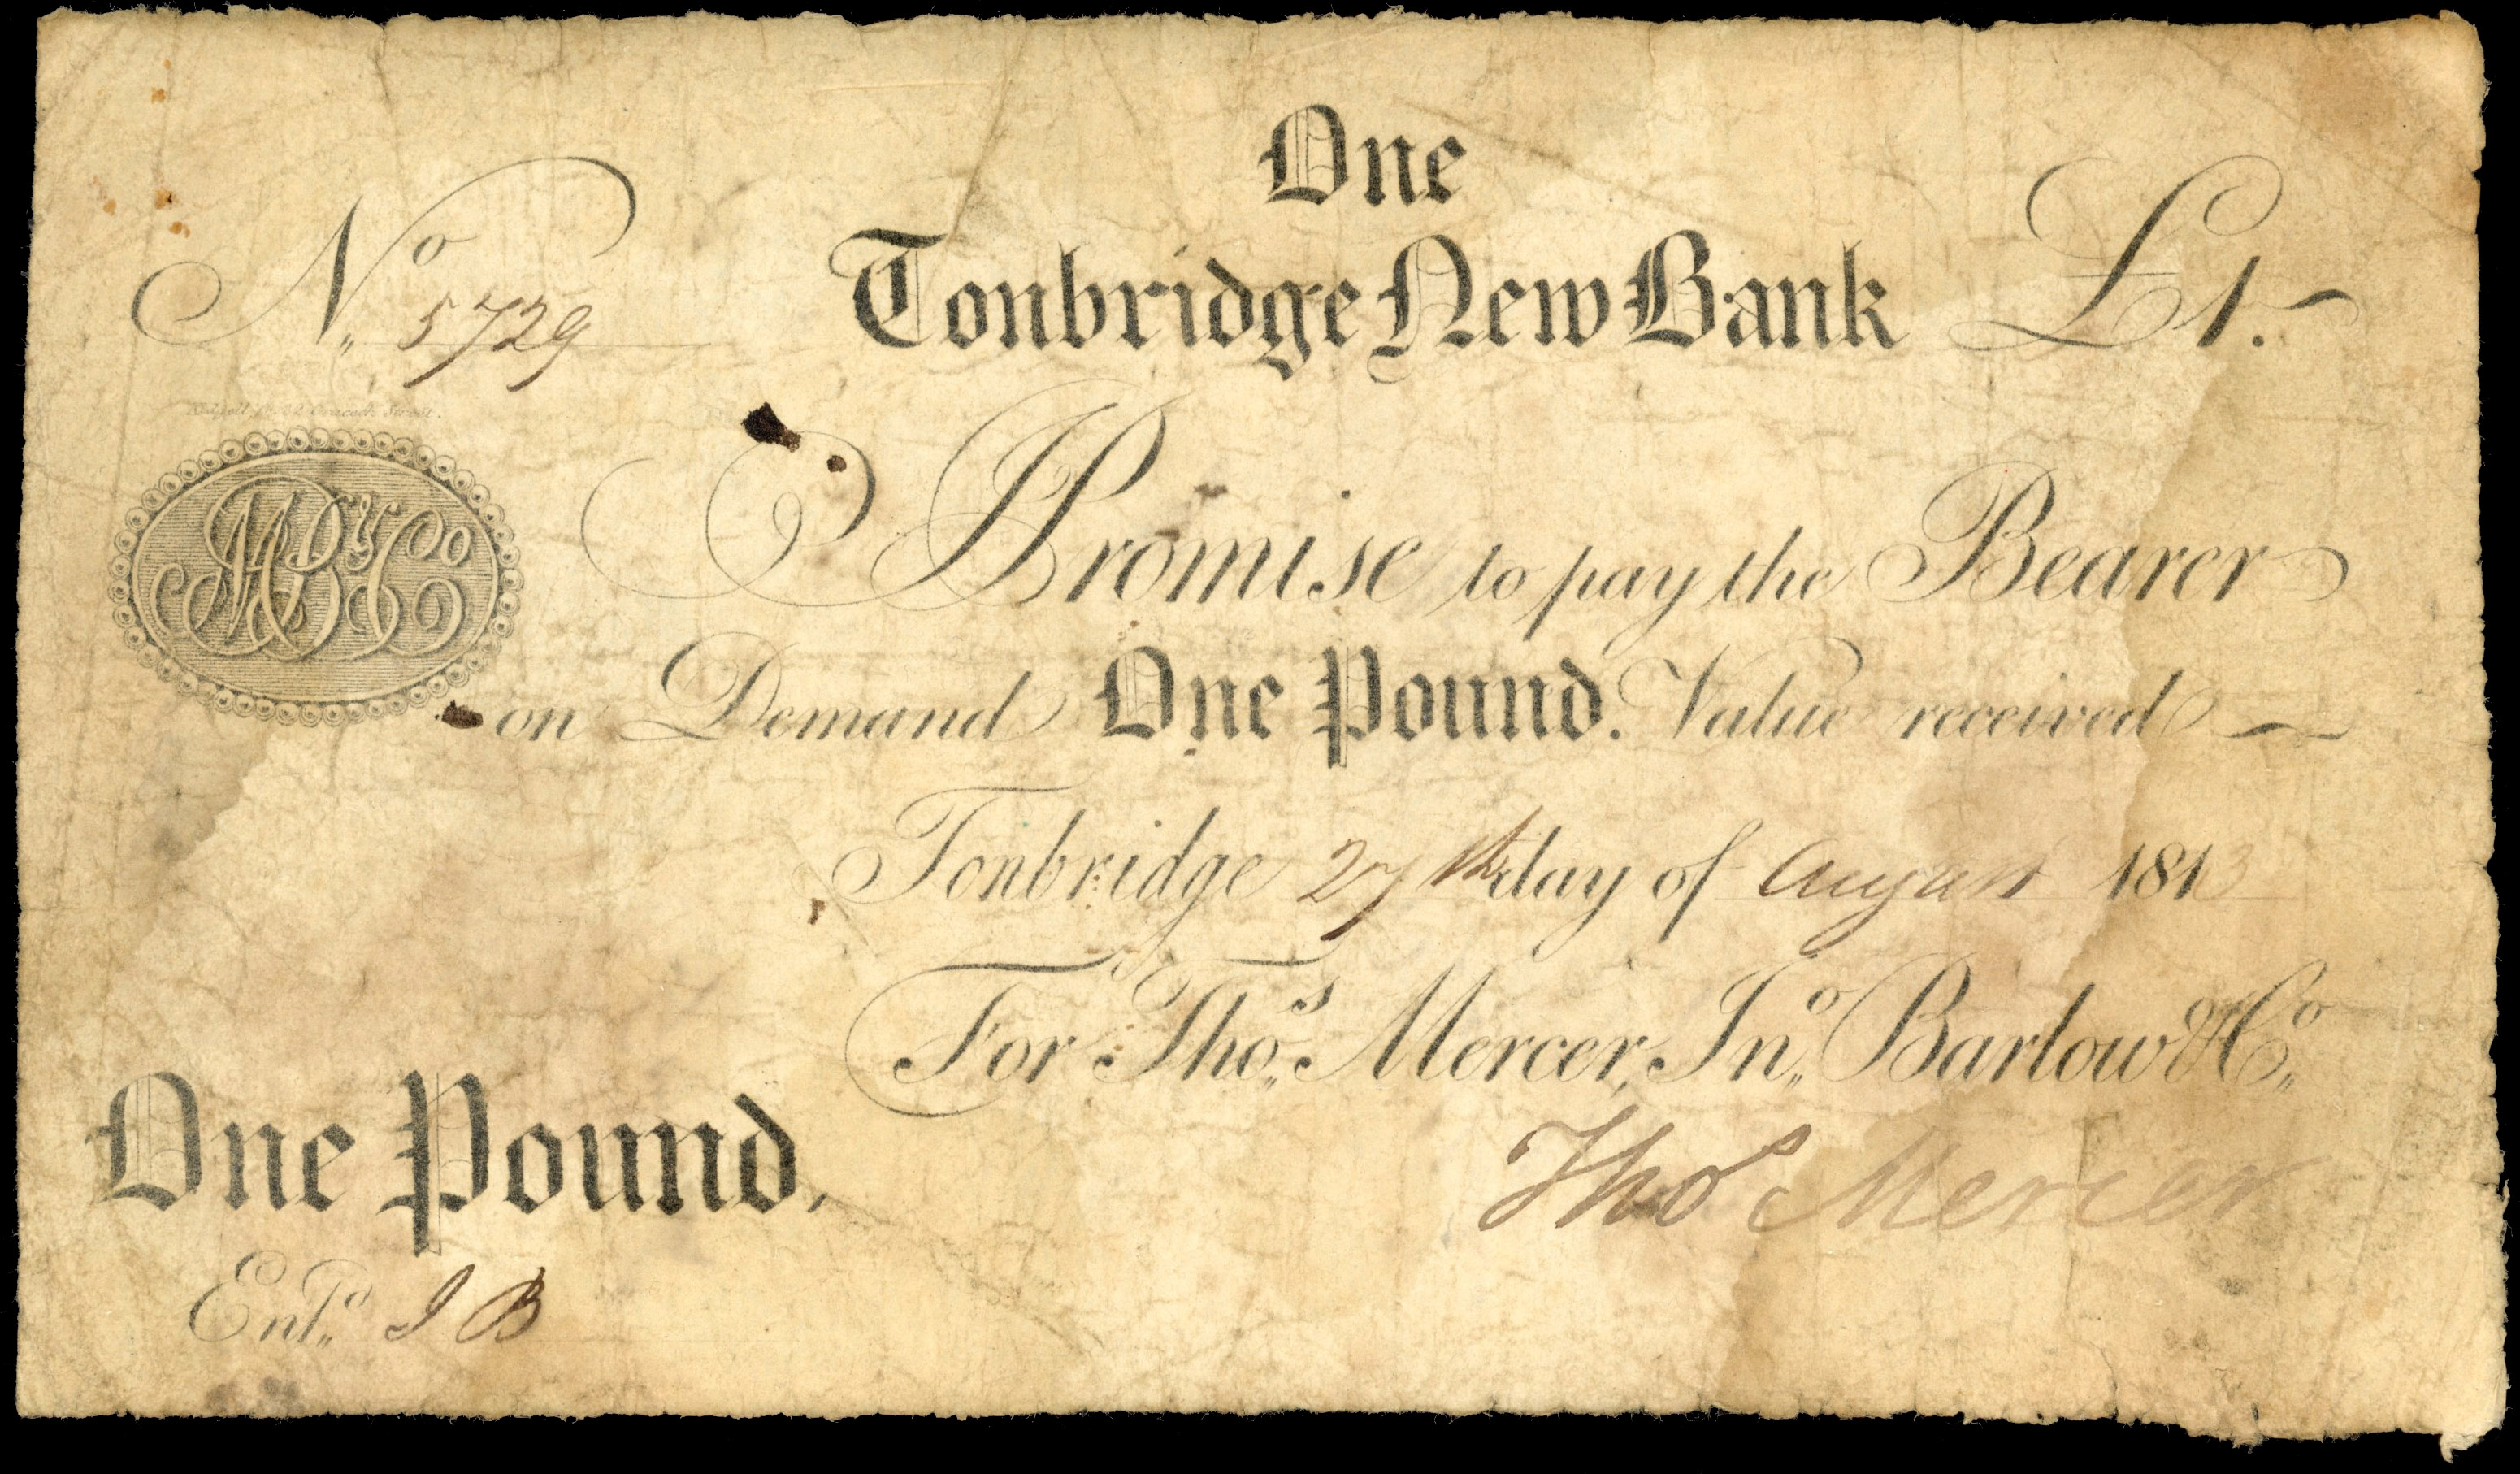 One
No 5729 Tonbridge New Bank £1.
I Promise to pay the Bearer
on Demand One Pound. Value received
Tonbridge 27th day of August 1813
For Thos. Mercer, Jno. Barlow & Co.
Thos Mercer
One Pound.
Entd. I B